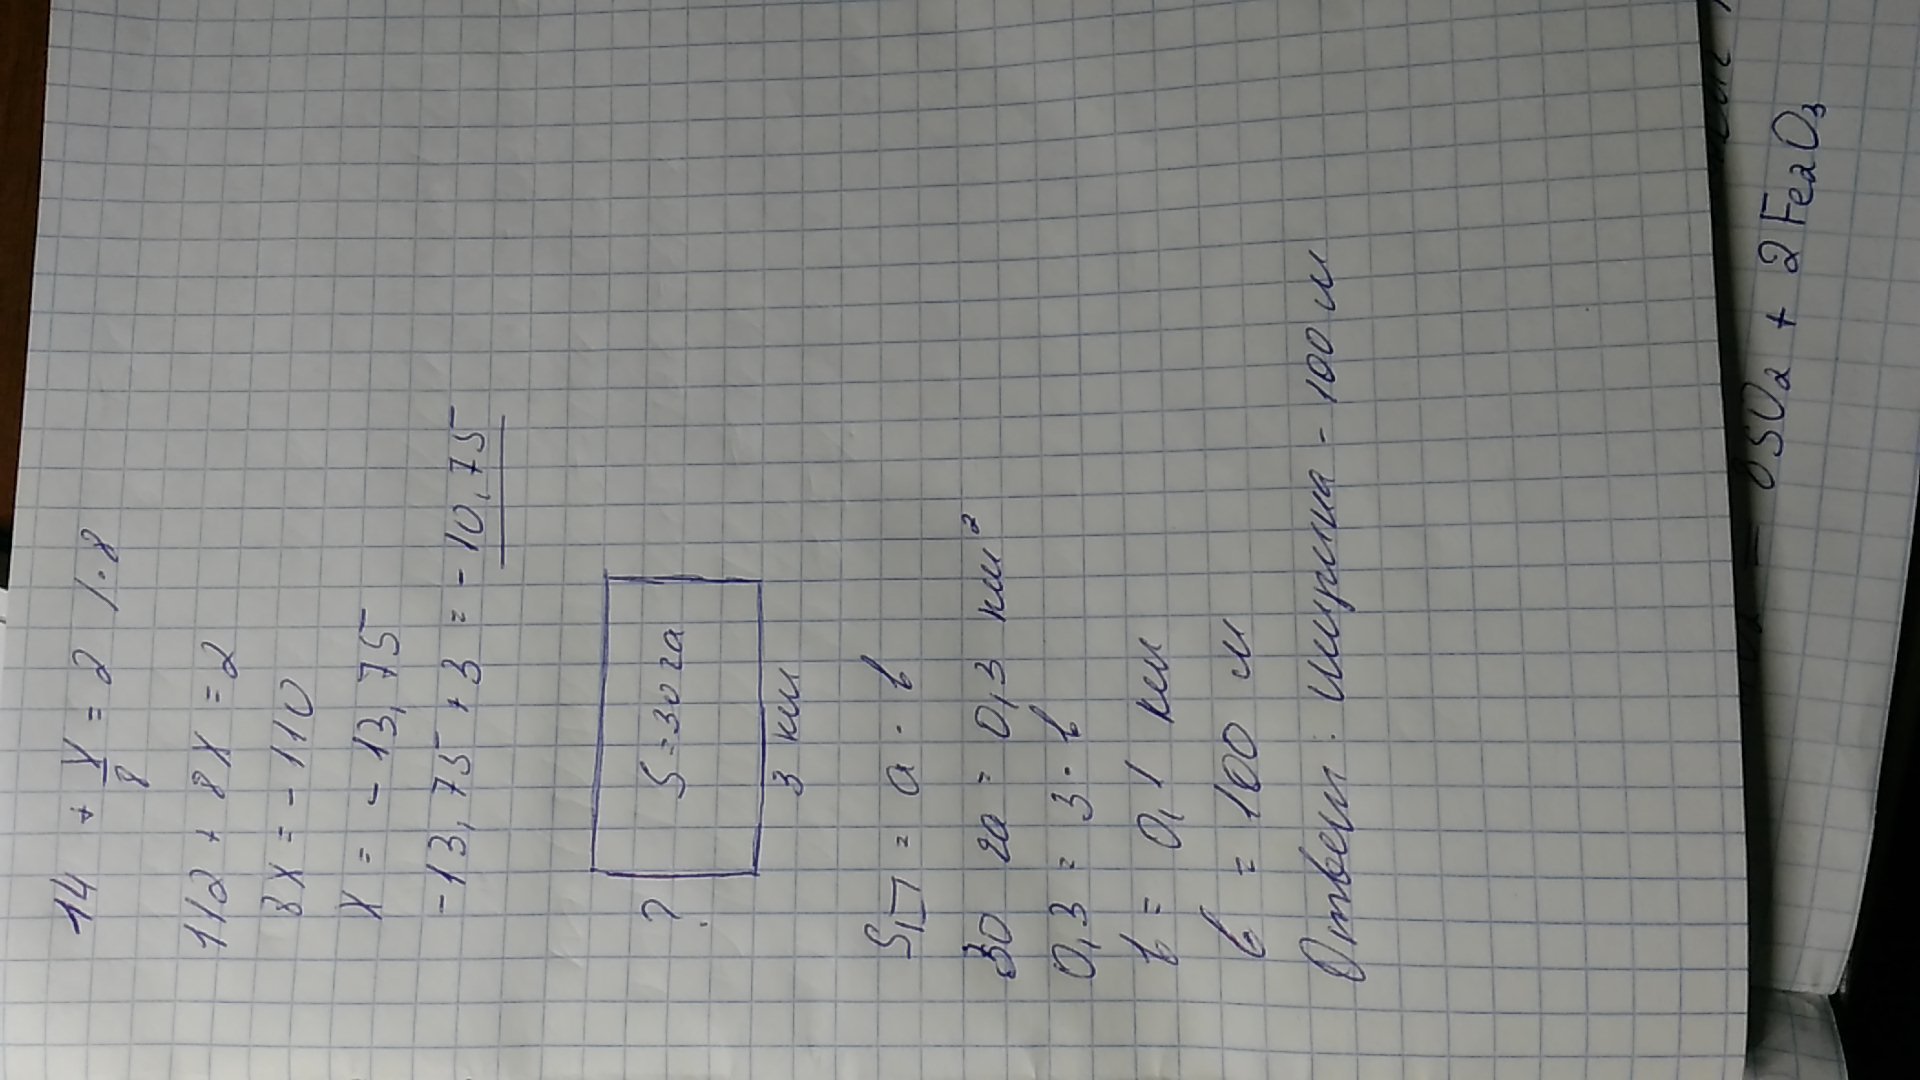 14 + x/8 = 2 /·8
112 + 8x = 2
8x = -110
x = -13,75
-13,75 + 3 = -10,75
? S=30 га
3 км
S▭ = a · b
30 га = 0,3 км²
0,3 = 3 · b
b = 0,1 км
b = 100 м
Ответ: ширина - 100 м
SO₂ + 2Fe₂O₃